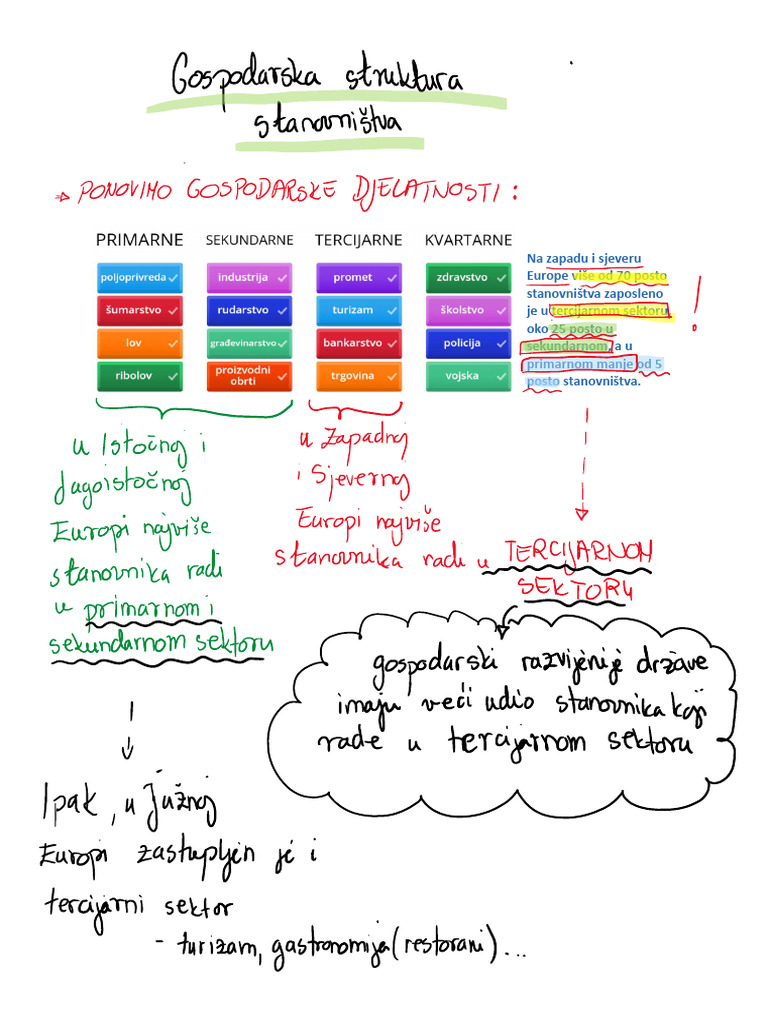 Gospodarska struktura
stanovništva
→ PONOVIMO GOSPODARSKE DJELATNOSTI :
PRIMARNE SEKUNDARNE TERCIJARNE KVARTARNE
poljoprivreda industrija promet zdravstvo
šumarstvo rudarstvo turizam školstvo
lov građevinarstvo bankarstvo policija
ribolov proizvodni obrti trgovina vojska
Na zapadu i sjeveru
Europe više od 70 posto
stanovništva zaposleno
je u tercijarnom sektoru,
oko 25 posto u
sekundarnom, a u
primarnom manje od 5
posto stanovništva.
!
u Istočnoj i
Jugoistočnoj
Europi najviše
stanovnika radi
u primarnom i
sekundarnom sektoru
u Zapadnoj
i Sjevernoj
Europi najviše
stanovnika radi u TERCIJARNOM
SEKTORU
gospodarski razvijenije države
imaju veći udio stanovnika koji
rade u tercijarnom sektoru
Ipak, u Južnoj
Europi zastupljen je i
tercijarni sektor
- turizam, gastronomija (restorani) ...